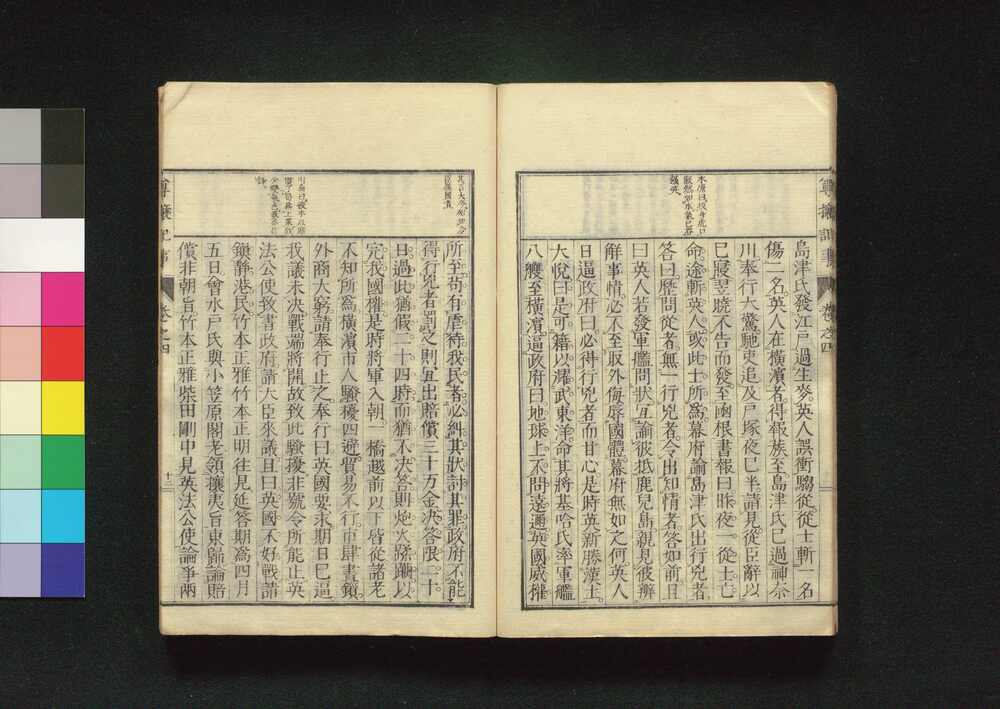 尊攘紀事
卷之四
島津氏發江戶過生麥英人誤衝騶從從士斬一名
傷二名英人在橫濱者得報族至島津氏已過神奈
川奉行大驚馳吏追及戶塚夜已半請見從臣辭以
已寢翌曉不告而發至函根書報曰昨夜一從士亡
命途斬英人或此士所爲幕府諭島津氏出行兇者
答曰歷問從者無一行兇者令出知情者答如前目
曰英人若發軍艦問狀互論彼抵鹿兒島親見彼辨
解事情必不至取外侮辱國體幕府無如之何英人
日逼政府曰必得行兇者而甘心是時英新勝漢土
大悅曰是可籍以濯武東洋命其將基哈氏率軍艦
八艘至橫濱逼政府曰地球上不問遠邇英國威權
所至苟有虐待我民者必糾其狀討其罪政府不能
得行兇者罰之則宜出賠償三十五金決答限二十
日過此猶假二十四時而猶不決答則炮火蹂躙以
完我國權是時將軍入朝一橋越前以下皆從諸老
不知所爲橫濱市人騷擾四遁貿易不行市肆晝鎖
外商大窮請奉行止之奉行曰英國要求期日已逼
我議未決戰端將開故致此騷擾非號令所能止英
法公使致書政府請大臣來議且曰英國不好戰請
鎭靜港民竹本正雅竹本正明往見延答期爲四月
五日會水戶氏與小笠原閣老領攘夷旨東歸論賠
償非朝旨竹本正雅柴田剛中見英法公使論爭兩
尊攘紀事
卷之四
十二